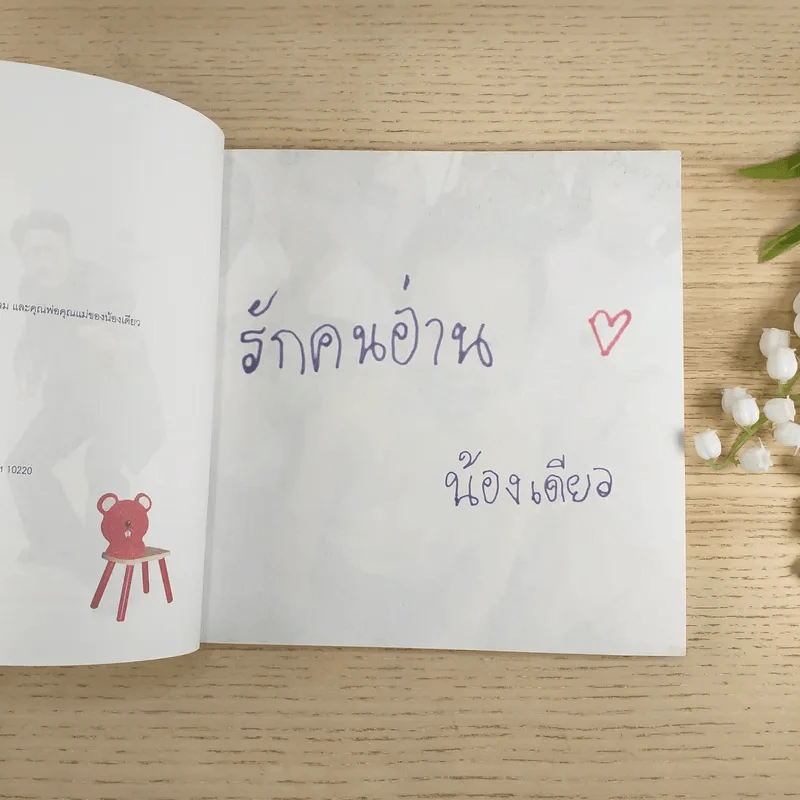 และคุณพ่อคุณแม่ของน้องเดียว
10220
รักคนอ่าน
น้องเดียว